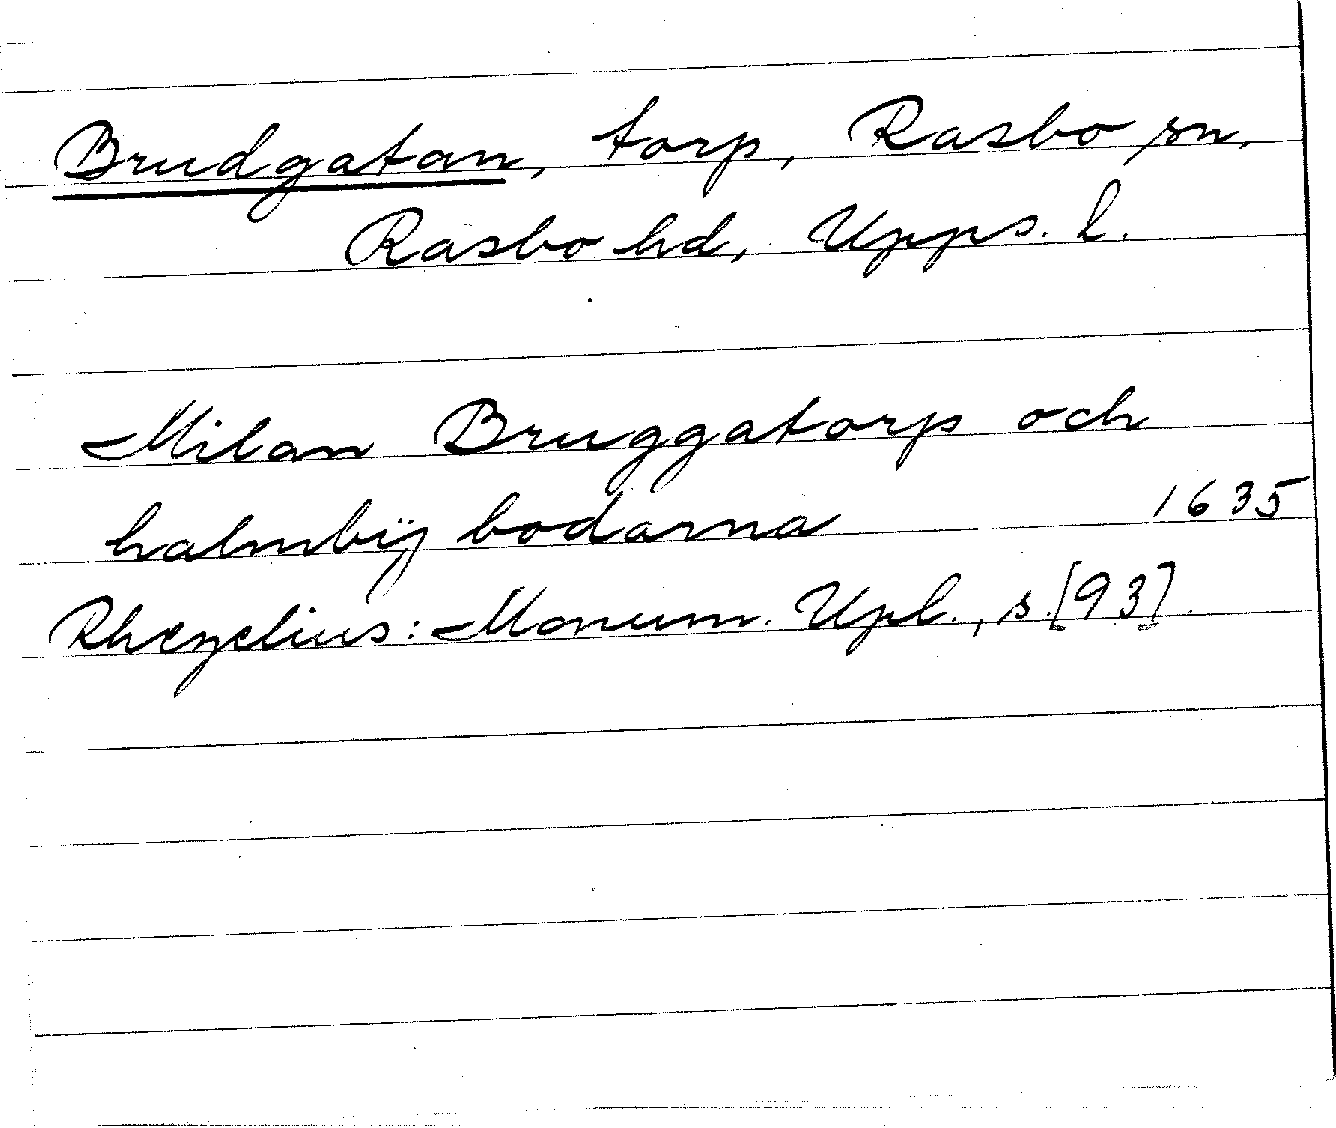 Brudgatan, torp, Rasbo sn.
Rasbo hd, Upps. l.
Milan Bruggatorp och
halmbÿ bodarna 1635
Rhezelius: Monum. Upl., s. [93].